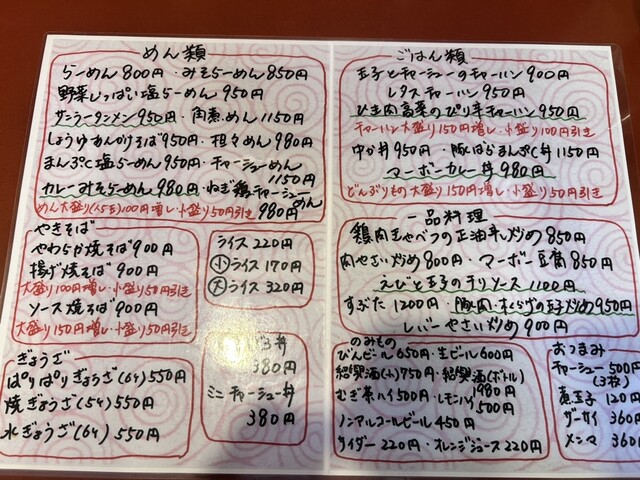 めん類
らーめん 800円・みそらーめん 850円
野菜いっぱい塩らーめん 950円
サンラータンメン 950円・角煮めん 1150円
しょうゆあんかけそば 950円・担々めん 980円
まんぷく塩らーめん 950円・チャーシューめん
1150円
カレーみそらーめん 980円・ねぎ鶏チャーシュー
めん
980円
めん大盛り(1.5玉)100円増し・小盛り50円引き
やきそば
やわらか焼そば 900円
揚げ焼そば 900円
大盛り100円増し・小盛り50円引き
ソース焼そば 900円
大盛り150円増し・小盛り50円引き
ライス 220円
小ライス 170円
大ライス 320円
ぎょうざ
ぱりぱりぎょうざ(6ケ) 550円
焼ぎょうざ(5ケ) 550円
水ぎょうざ(6ケ) 550円
丼
380円
ミニチャーシュー丼
380円
ごはん類
玉子とチャーシューのチャーハン 900円
レタスチャーハン 950円
ひき肉高菜のぴり辛チャーハン 950円
チャーハン大盛り150円増し・小盛り100円引き
中か丼 950円・豚ばらまんぷく丼 1150円
マーボーカレー丼 980円
どんぶりもの大盛り150円増し・小盛り50円引き
一品料理
鶏肉キャベツの正油辛し炒め 850円
肉やさい炒め 800円・マーボー豆腐 850円
えびと玉子のチリソース 1100円
すぶた 1200円・豚肉・木くらげの玉子炒め 950円
レバーやさい炒め 900円
のみもの
びんビール 650円・生ビール 600円
紹興酒(小) 750円・紹興酒(ボトル)
1980円
むぎ茶ハイ 500円・レモンハイ
500円
ノンアルコールビール 450円
サイダー 220円・オレンジジュース 220円
おつまみ
チャーシュー 500円
(3枚)
煮玉子 120円
ザーサイ 360円
メンマ 360円